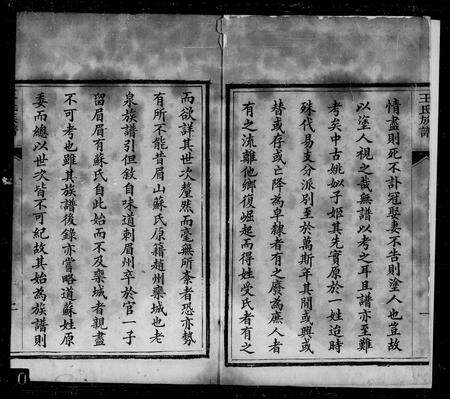 王氏族譜
情盡則死不訃冠娶妻不告則塗人也豈故
以塗人視之哉無譜以考之耳且譜亦至難
考矣中古姚姒子姬其先實原於一姓迨時
殊代易支分派別至於萬斯年其間或興或
替或存或亡降為皁隸者有之廢為庶人者
有之流離他鄉復崛起而得姓受氏者有之
而欲詳其世次釐然而毫無所紊者恐亦勢
有所不能昔眉山蘇氏原籍趙州欒城也老
泉族譜引但敘自味道刺眉州卒於官一子
留眉眉有蘇氏自此始而不及欒城者親盡
不可考也雖其族譜後錄亦嘗略道蘇姓原
委而總以世次皆不可紀故其始為族譜則